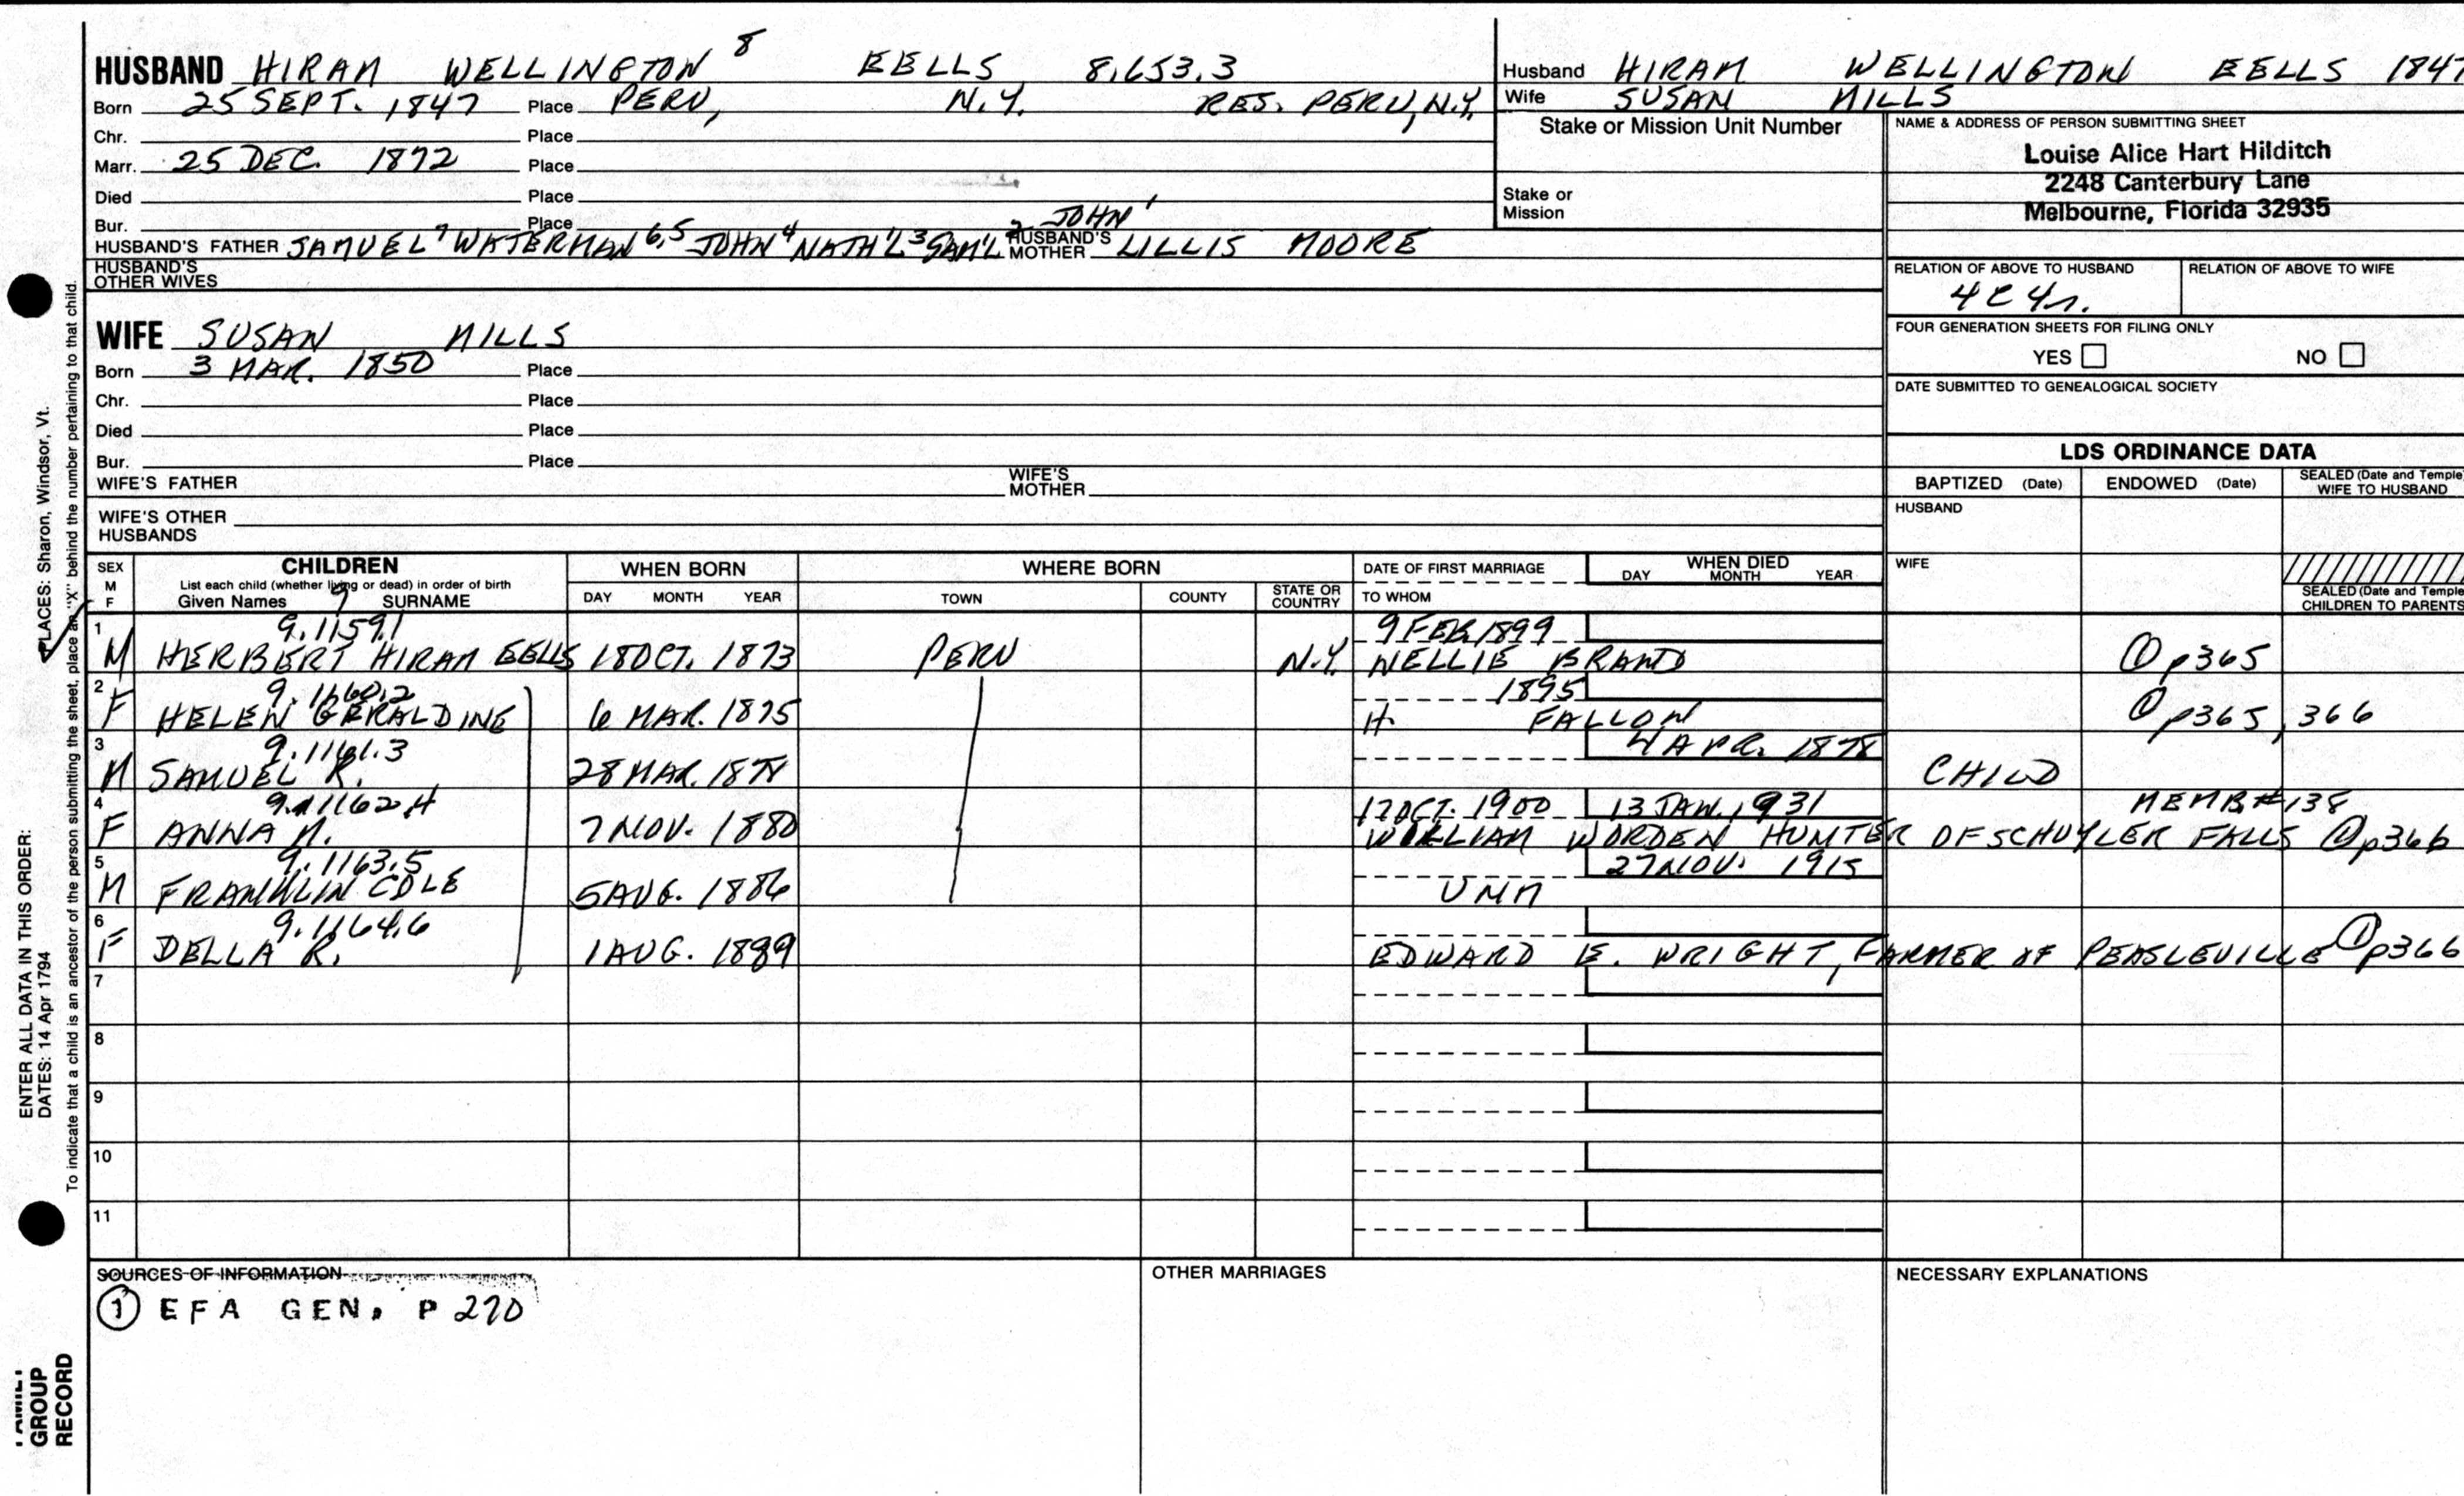 HUSBAND HIRAM WELLINGTON 8 EELLS 8.653.3
Born 25 SEPT. 1847 Place PERU, N.Y. RES. PERU, N.Y.
Chr. Place
Marr. 25 DEC. 1872 Place
Died Place
Bur. Place
HUSBAND'S FATHER SAMUEL 7 WATERMAN 6,5 JOHN 4 NATH'L 3 SAM'L 2 JOHN 1 HUSBAND'S MOTHER LILLIS MOORE
HUSBAND'S OTHER WIVES
WIFE SUSAN MILLS
Born 3 MAR. 1850 Place
Chr. Place
Died Place
Bur. Place
WIFE'S FATHER WIFE'S MOTHER
WIFE'S OTHER HUSBANDS
Husband HIRAM WELLINGTON EELLS 1847
Wife SUSAN MILLS
Stake or Mission Unit Number
Stake or Mission
NAME & ADDRESS OF PERSON SUBMITTING SHEET
Louise Alice Hart Hilditch
2248 Canterbury Lane
Melbourne, Florida 32935
RELATION OF ABOVE TO HUSBAND RELATION OF ABOVE TO WIFE
4C4r.
FOUR GENERATION SHEETS FOR FILING ONLY
YES NO
DATE SUBMITTED TO GENEALOGICAL SOCIETY
LDS ORDINANCE DATA
BAPTIZED (Date) ENDOWED (Date) SEALED (Date and Temple) WIFE TO HUSBAND
HUSBAND
WIFE
SEALED (Date and Temple) CHILDREN TO PARENTS
SEX M F
CHILDREN
List each child (whether living or dead) in order of birth
Given Names 9 SURNAME
WHEN BORN
DAY MONTH YEAR
WHERE BORN
TOWN COUNTY STATE OR COUNTRY
DATE OF FIRST MARRIAGE
TO WHOM
WHEN DIED
DAY MONTH YEAR
1 9.1159.1 9 FEB. 1899
M HERBERT HIRAM EELLS 18 OCT. 1873 PERU N.Y. NELLIE BRAND ① p365
2 9.1160.2 1895
F HELEN GERALDINE 6 MAR. 1875 H. FALLON ① p365, 366
3 9.1161.3 4 APR. 1878
M SAMUEL R. 28 MAR. 1878 CHILD
4 9.1162.4 17 OCT. 1900 13 JAN. 1931 MEMB #138
F ANNA M. 7 NOV. 1880 WILLIAM WORDEN HUNTER OF SCHUYLER FALLS ① p366
5 9.1163.5 27 NOV. 1915
M FRANKLIN COLE 5 AUG. 1886 UNM
6 9.1164.6
F DELLA R. 1 AUG. 1889 EDWARD E. WRIGHT, FARMER OF PEASLEVILLE ① p366
7
8
9
10
11
SOURCES OF INFORMATION
① EFA GEN. P 270
OTHER MARRIAGES
NECESSARY EXPLANATIONS
ENTER ALL DATA IN THIS ORDER:
DATES: 14 Apr 1794 PLACES: Sharon, Windsor, Vt.
To indicate that a child is an ancestor of the person submitting the sheet, place an "X" behind the number pertaining to that child.
FAMILY
GROUP
RECORD